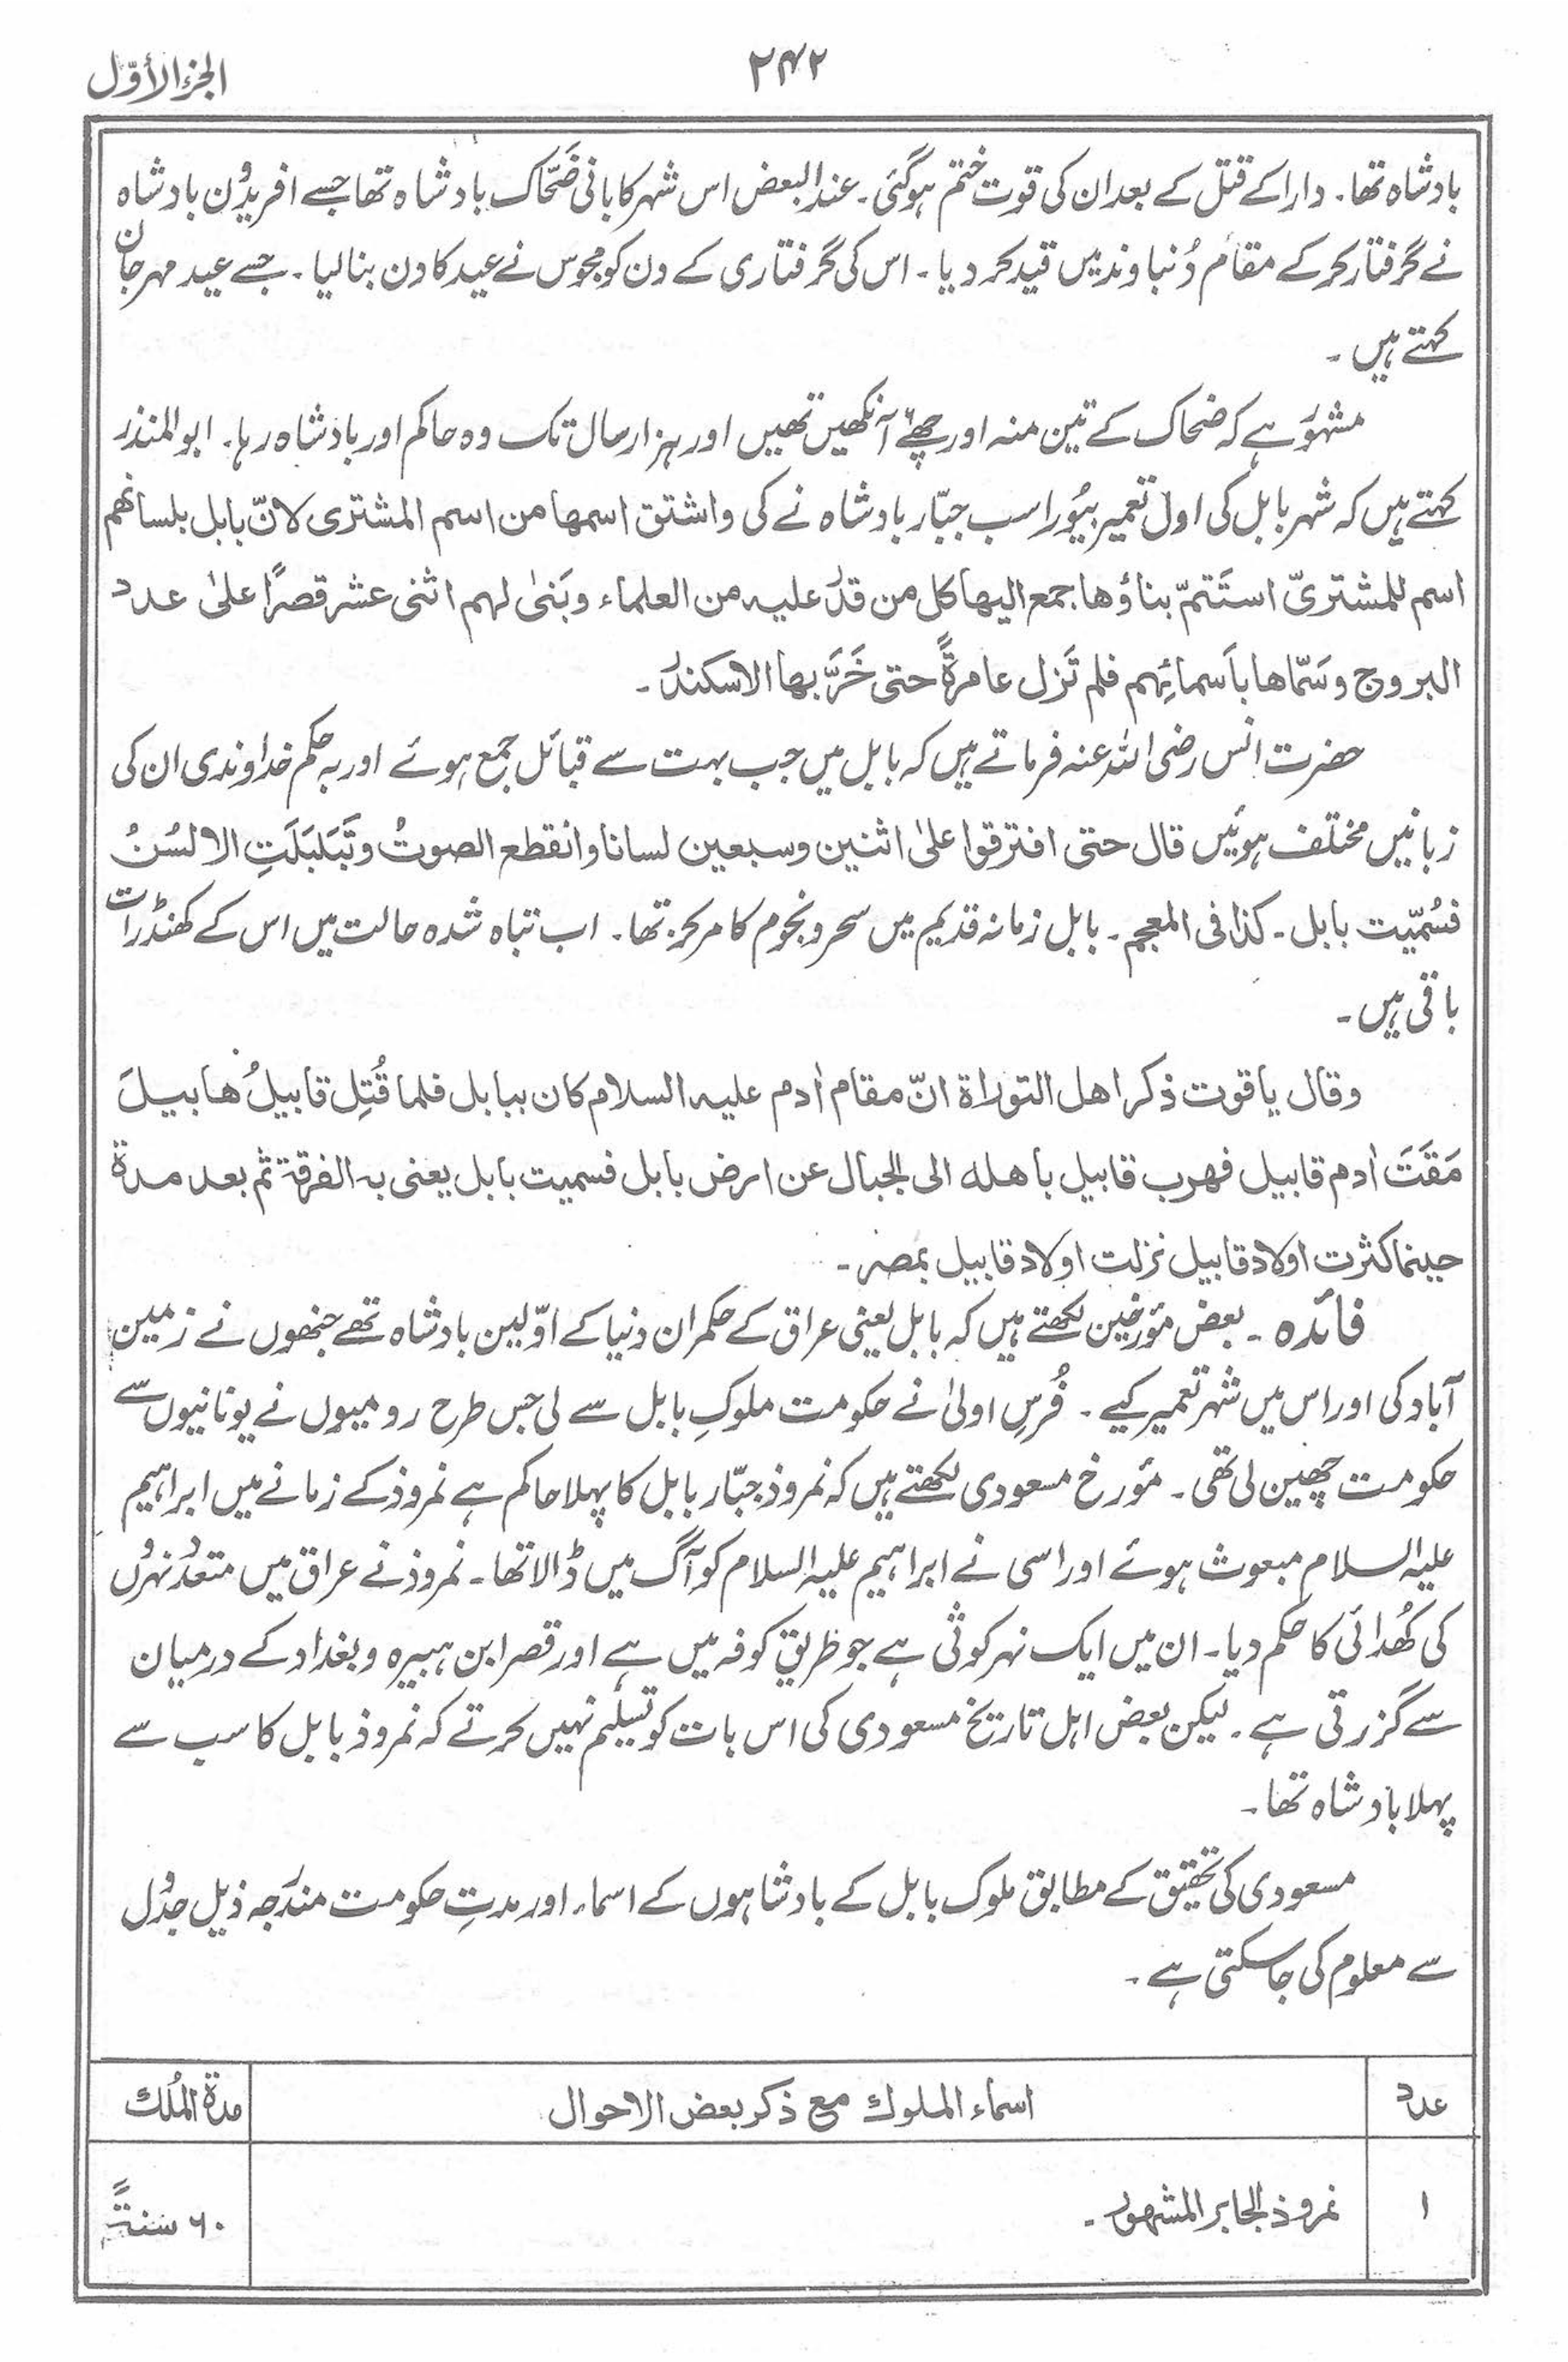 الجزء الأوّل
۲۴۲
بادشاہ تھا۔ دارا کے قتل کے بعد ان کی قوت ختم ہوگئی۔ عند البعض اس شہر کا بانی ضَحّاک بادشاہ تھا جسے افریدُون بادشاہ
نے گرفتار کر کے مقام دُنباوند میں قید کر دیا۔ اس کی گرفتاری کے دن کو مجوس نے عید کا دن بنا لیا۔ جسے عید مہرجان
کہتے ہیں۔
مشہور ہے کہ ضحاک کے تین منہ اور چھے آنکھیں تھیں اور ہزار سال تک وہ حاکم اور بادشاہ رہا۔ ابو المنذر
کہتے ہیں کہ شہر بابل کی اول تعمیر بیُوراسب جبّار بادشاہ نے کی واشتق اسمها من اسم المشتری لانّ بابل بلسانهم
اسم للمشتریّ استَتمّ بناؤها جمع الیها کل من قدر علیہ من العلماء وبَنیٰ لهم اثنی عشر قصرًا علیٰ عدد
البروج وسَمّاها باَسمائِهم فلم تَزل عامرةً حتی خَرَّبها الاسکندر۔
حضرت انس رضی اللہ عنہ فرماتے ہیں کہ بابل میں جب بہت سے قبائل جمع ہوئے اور بہ حکم خداوندی ان کی
زبانیں مختلف ہوئیں قال حتی افترقوا علیٰ اثنین وسبعین لسانا وانقطع الصوتُ وتَبَلبَلَتِ الالسُنُ
فسُمّیت بابل۔ کذا فی المعجم۔ بابل زمانہ قدیم میں سحر و نجوم کا مرکز تھا۔ اب تباہ شدہ حالت میں اس کے کھنڈرات
باقی ہیں۔
وقال یاقوت ذکر اهل التوراة انّ مقام اٰدم علیہ السلام کان ببابل فلما قُتِل قابیلُ هابیلَ
مَقَتَ اٰدم قابیل فهرب قابیل باهله الی الجبال عن ارض بابل فسمیت بابل یعنی بہ الفرقة ثم بعد مدة
حینما کثرت اولاد قابیل نزلت اولاد قابیل بمصر۔
فائدہ۔ بعض مؤرخین لکھتے ہیں کہ بابل یعنی عراق کے حکمران دنیا کے اوّلین بادشاہ تھے جنھوں نے زمین
آباد کی اور اس میں شہر تعمیر کیے۔ فُرسِ اولیٰ نے حکومت ملوکِ بابل سے لی جس طرح رومیوں نے یونانیوں سے
حکومت چھین لی تھی۔ مؤرخ مسعودی لکھتے ہیں کہ نمروذ جبّار بابل کا پہلا حاکم ہے نمروذ کے زمانے میں ابراہیم
علیہ السلام مبعوث ہوئے اور اسی نے ابراہیم علیہ السلام کو آگ میں ڈالا تھا۔ نمروذ نے عراق میں متعدد نہروں
کی کھُدائی کا حکم دیا۔ ان میں ایک نہر کوثی ہے جو طریقِ کوفہ میں ہے اور قصر ابن ہبیرہ و بغداد کے درمیان
سے گزرتی ہے۔ لیکن بعض اہل تاریخ مسعودی کی اس بات کو تسلیم نہیں کرتے کہ نمروذ بابل کا سب سے
پہلا بادشاہ تھا۔
مسعودی کی تحقیق کے مطابق ملوک بابل کے بادشاہوں کے اسماء اور مدتِ حکومت مندرجہ ذیل جدول
سے معلوم کی جاسکتی ہے۔
عدد اسماء الملوك مع ذكر بعض الاحوال مدة المُلك
۱ نمروذ الجابر المشهور۔ ۶۰ سنةً